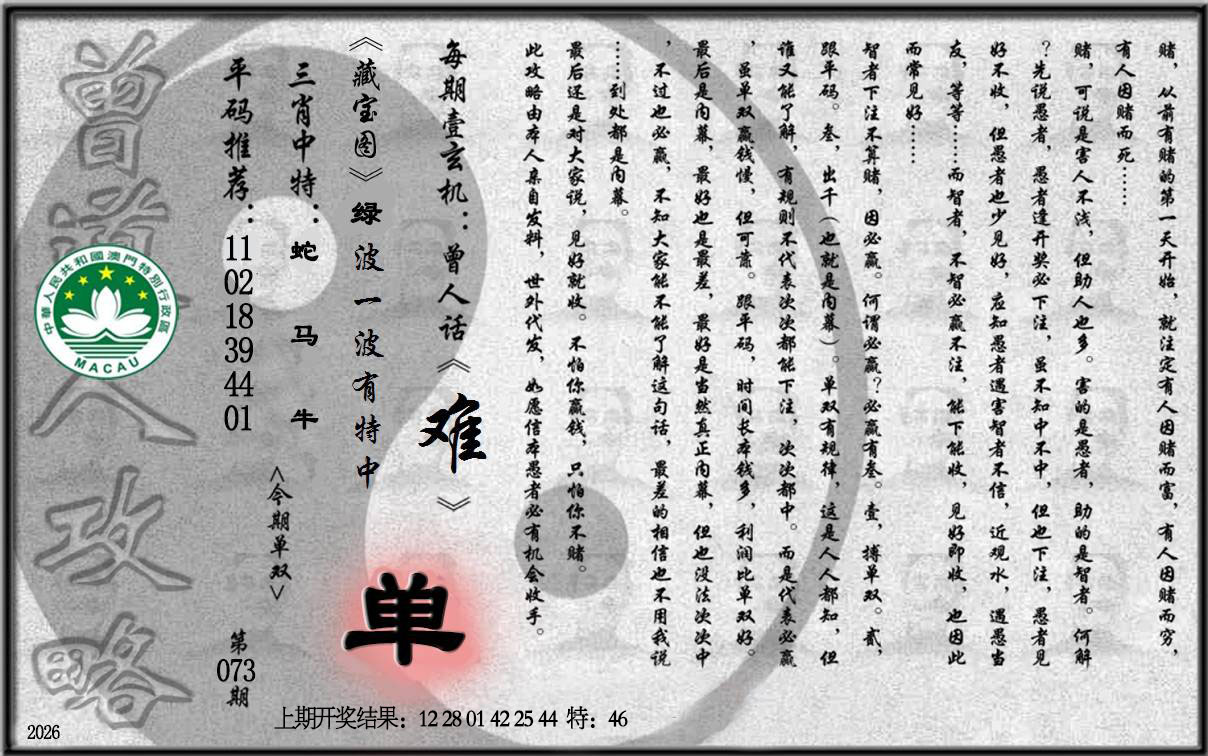 赌，从前有赌的第一天开始，就注定有人因赌而富，有人因赌而穷，
有人因赌而死……
赌，可说是害人不浅，但助人也多。害的是愚者，助的是智者。何解
？先说愚者，愚者逢开奖必下注，虽不知中不中，但也下注，愚者见
好不收，但愚者也少见好，应知愚者遇害智者不信，近观水，遇愚当
友，等等……而智者，不智必赢不注，能下能收，见好即收，也因此
而常见好……
智者下注不算赌，因必赢。何谓必赢？必赢有叁。壹，搏单双。贰，
跟平码。叁，出千（也就是内幕）。单双有规律，这是人人都知，但
谁又能了解，有规则不代表次次都能下注，次次都中。而是代表必赢
，虽单双赢钱慢，但可靠。跟平码，时间长本钱多，利润比单双好。
最后是内幕，最好也是最差，最好是当然真正内幕，但也没法次次中
，不过也必赢，不知大家能不能了解这句话，最差的相信也不用我说
……到处都是内幕。
最后还是对大家说，见好就收。不怕你赢钱，只怕你不赌。
此攻略由本人亲自发料，世外代发，如愿信本愚者必有机会收手。
每期壹玄机：曾人话《难》
《藏宝图》绿波一波有特中
单
三肖中特：蛇 马 牛
<今期单双>
平码推荐：11 02 18 39 44 01
第073期
曾道人攻略
中華人民共和國澳門特別行政區
MACAU
上期开奖结果：12 28 01 42 25 44 特：46
2026